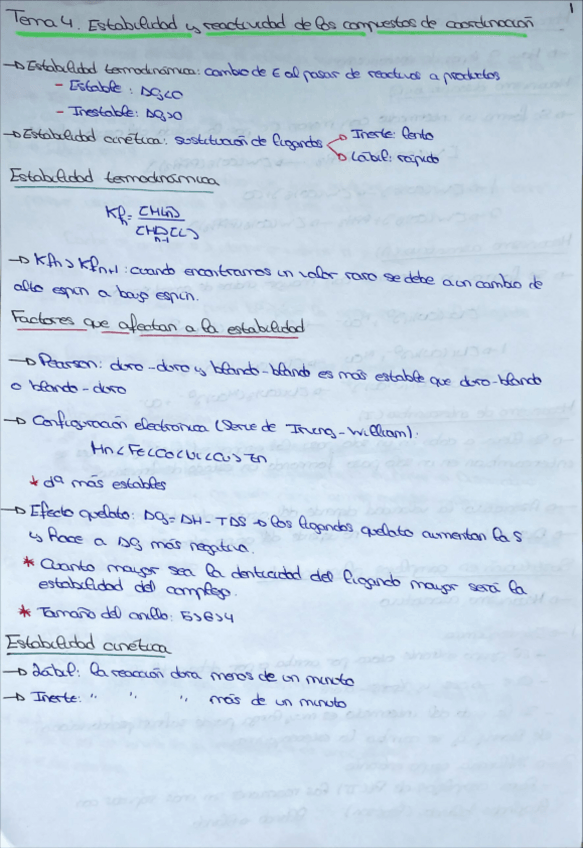 1
Tema 4. Estabilidad y reactividad de los compuestos de coordinación
→ Estabilidad termodinámica: cambio de E al pasar de reactivos a productos
- Estable: ΔG<0
- Inestable: ΔG>0
→ Estabilidad cinética: sustitución de ligandos
Inerte: lento
Lábil: rápido
Estabilidad termodinámica
Kfn = [MLn]/[MLn-1][L]
→ Kfn > Kfn+1: cuando encontramos un valor raro se debe a un cambio de
alto espín a bajo espín.
Factores que afectan a la estabilidad
→ Pearson: duro-duro y blando-blando es más estable que duro-blando
o blando-duro
→ Configuración electrónica (Serie de Irving-William).
Mn<Fe<Co<Ni<Cu>Zn
* d⁹ más estables
→ Efecto quelato: ΔG=ΔH-TΔS → los ligandos quelato aumentan la S
y hace a ΔG más negativa.
* Cuanto mayor sea la denticidad del ligando mayor será la
estabilidad del complejo.
* Tamaño del anillo: 5>6>4
Estabilidad cinética
→ Lábil: la reacción dura menos de un minuto
→ Inerte: " " " más de un minuto